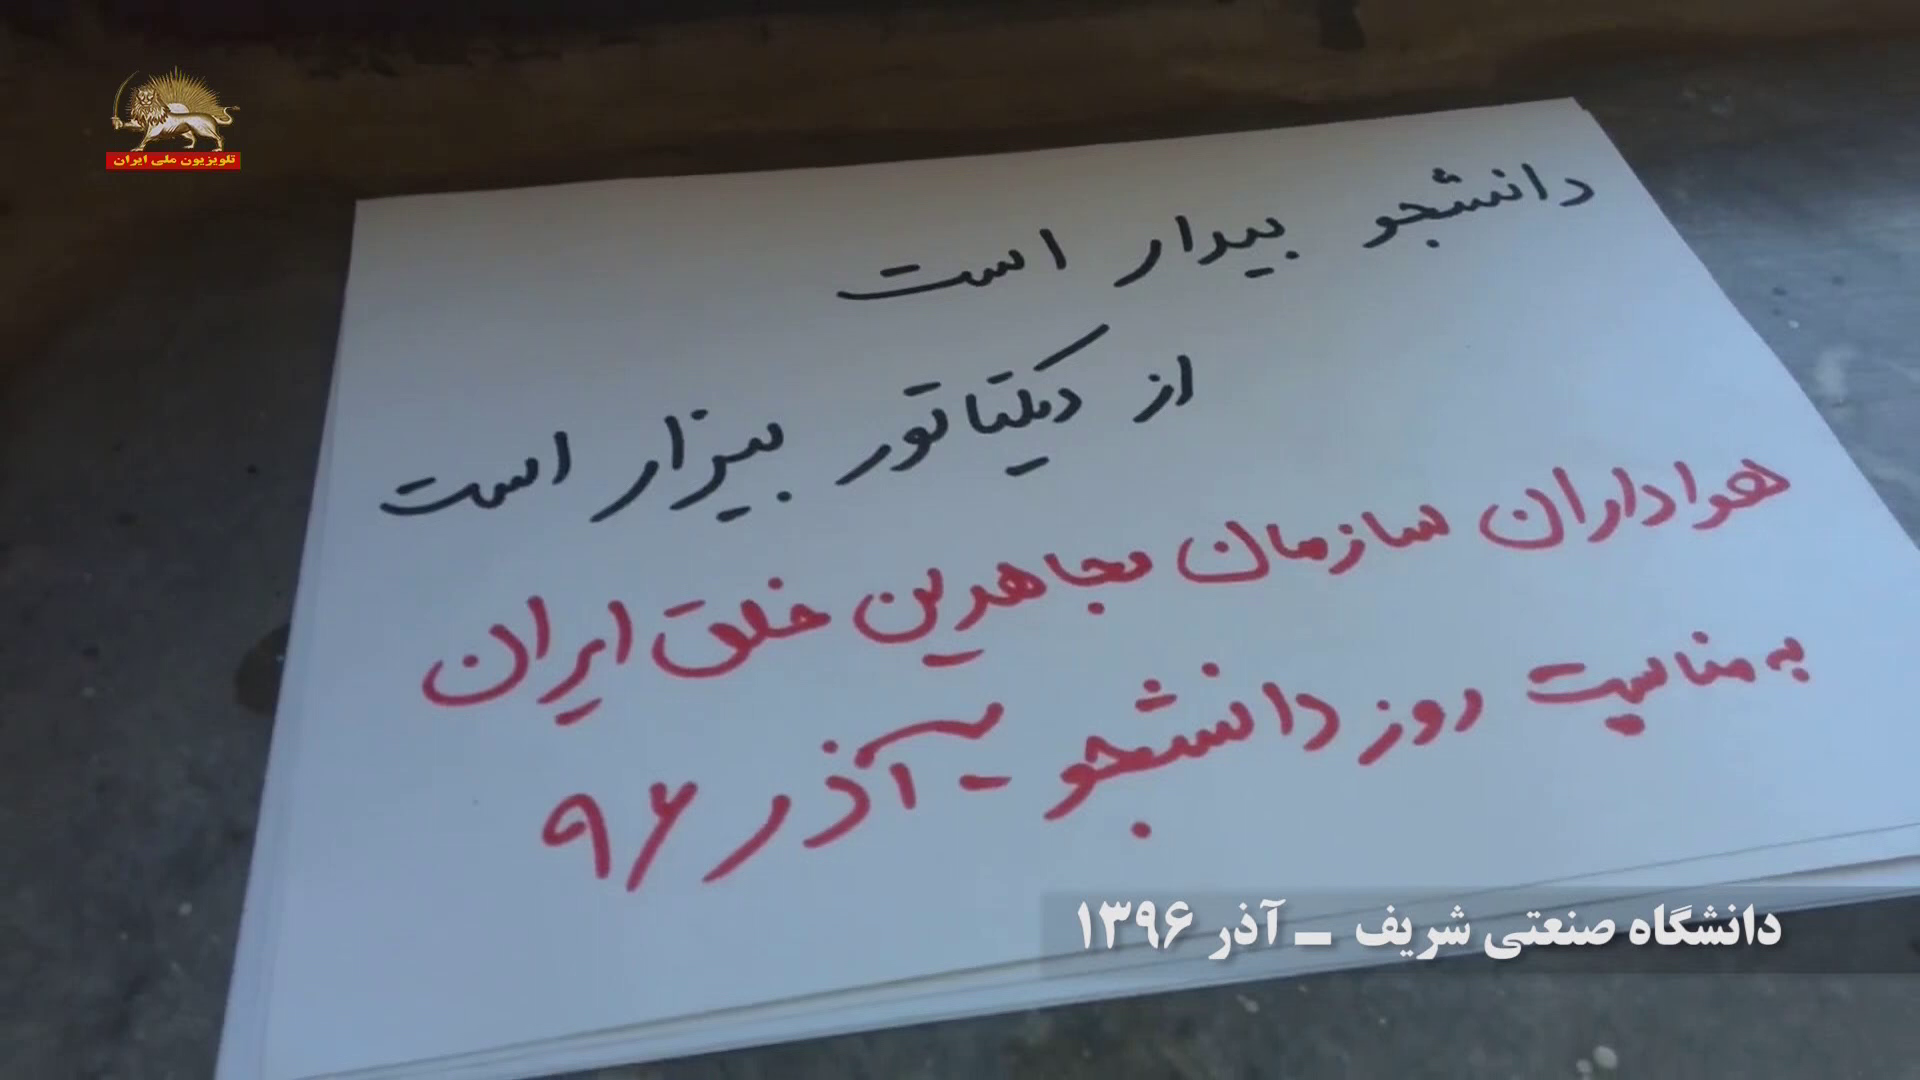 تلویزیون ملی ایران
دانشجو بیدار است
از دیکتاتور بیزار است
هواداران سازمان مجاهدین خلق ایران
به مناسبت روز دانشجو – آذر ۹۶
دانشگاه صنعتی شریف – آذر ۱۳۹۶